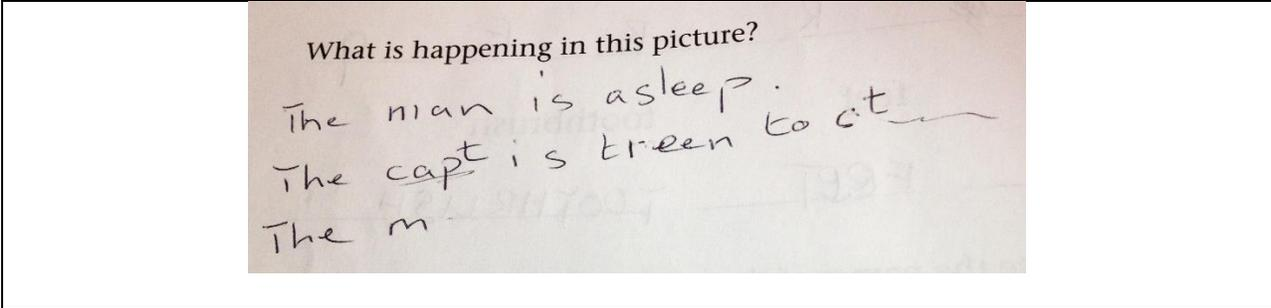 What is happening in this picture?
The man is asleep.
The capt is treen to
The m